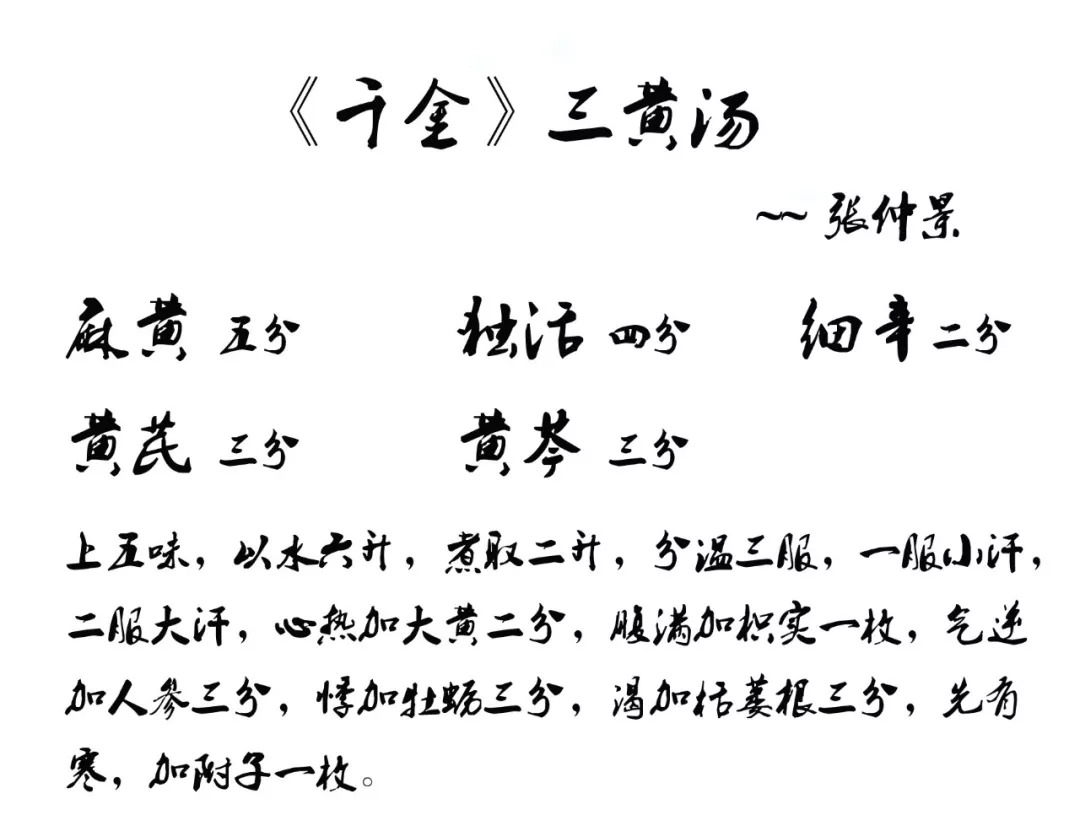 《千金》三黄汤
~~张仲景
麻黄 五分 独活 四分 细辛 二分
黄芪 三分 黄芩 三分
上五味，以水六升，煮取二升，分温三服，一服小汗，
二服大汗，心热加大黄二分，腹满加枳实一枚，气逆
加人参三分，悸加牡蛎三分，渴加栝蒌根三分，先有
寒，加附子一枚。